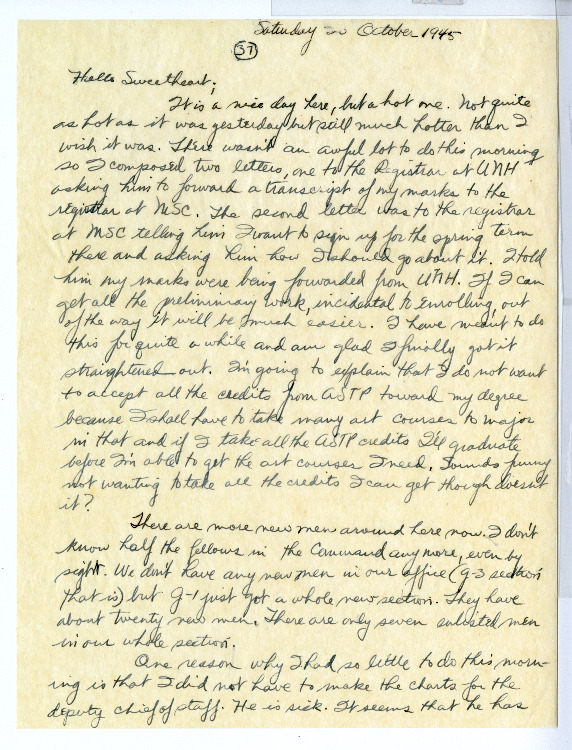 Saturday in October 1945
37
Hello Sweetheart;
It is a nice day here, but a hot one. Not quite
as hot as it was yesterday but still much hotter than I
wish it was. There wasn't an awful lot to do this morning
so I composed two letters, one to the Registrar at UNH
asking him to forward a transcript of my marks to the
registrar at MSC. The second letter was to the registrar
at MSC telling him I want to sign up for the spring term
there and asking him how I should go about it. I told
him my marks were being forwarded from UNH. If I can
get all the preliminary work, incidental to enrolling, out
of the way it will be much easier. I have meant to do
this for quite a while and am glad I finally got it
straightened out. I'm going to explain that I do not want
to accept all the credits from ASTP toward my degree
because I shall have to take many art courses to major
in that and if I take all the ASTP credits I'll graduate
before I'm able to get the art courses I need. Sounds funny
not wanting to take all the credits I can get though doesn't
it?
There are more new men around here now. I don't
know half the fellows in the Command anymore, even by
sight. We don't have any new men in our office (G-3 section
that is) but G-1 just got a whole new section. They have
about twenty new men. There are only seven enlisted men
in our whole section.
One reason why I had so little to do this morn-
ing is that I did not have to make the charts for the
deputy chief of staff. He is sick. It seems that he has